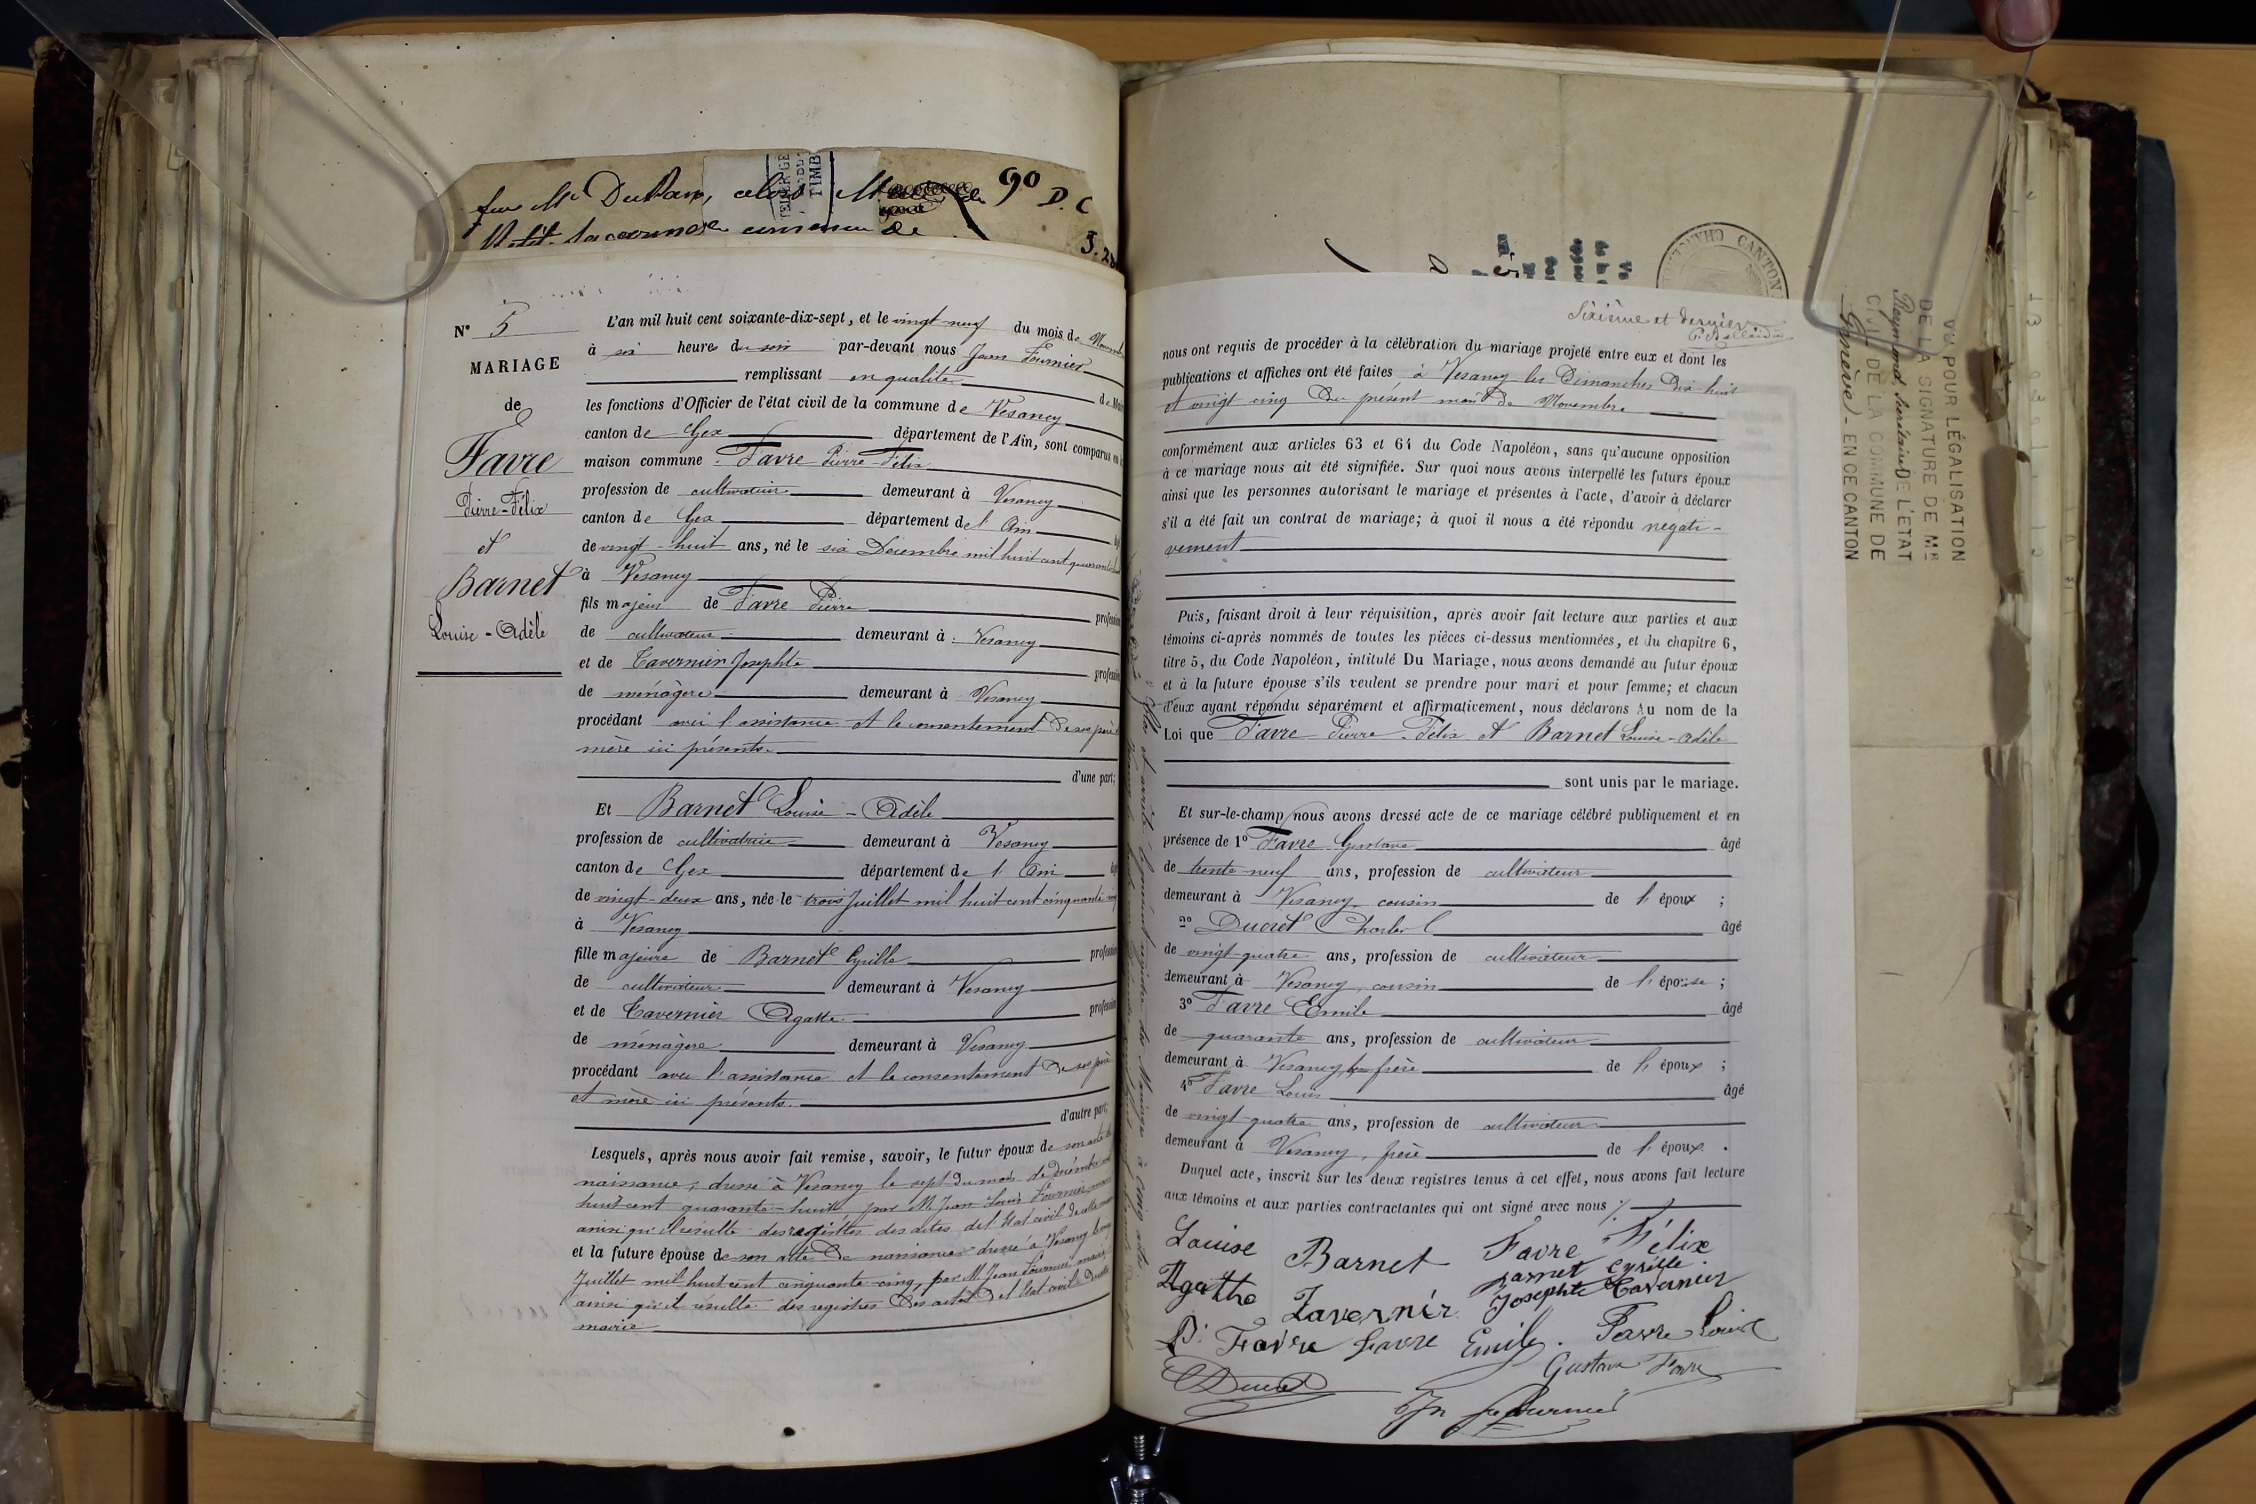 feu Mr Duttan, alors
90 D. C
TIMB
N° 5
MARIAGE
de
Favre
Pierre-Félix
et
Barnet
Louise-Adèle
L'an mil huit cent soixante-dix-sept, et le vingt-neuf du mois de Novembre
à six heures du soir par-devant nous Jean Fournier
remplissant en qualité de Maire
les fonctions d'Officier de l'état civil de la commune de Vesancy
canton de Gex département de l'Ain, sont comparus en la
maison commune : Favre Pierre-Félix
profession de cultivateur demeurant à Vesancy
canton de Gex département de l'Ain âgé
de vingt-huit ans, né le six Décembre mil huit cent quarante-huit
à Vesancy
fils majeur de Favre Pierre profession
de cultivateur demeurant à Vesancy
et de Tavernier Josephte profession
de ménagère demeurant à Vesancy
procédant avec l'assistance et le consentement de ses père et
mère ici présents.
d'une part;
Et Barnet Louise-Adèle
profession de cultivatrice demeurant à Vesancy
canton de Gex département de l'Ain âgée
de vingt-deux ans, née le trois Juillet mil huit cent cinquante-cinq
à Vesancy
fille majeure de Barnet Cyrille profession
de cultivateur demeurant à Vesancy
et de Tavernier Agatte profession
de ménagère demeurant à Vesancy
procédant avec l'assistance et le consentement de ses père
et mère ici présents.
d'autre part;
Lesquels, après nous avoir fait remise, savoir, le futur époux de son acte de
naissance, dressé à Vesancy le sept du mois de Décembre mil
huit cent quarante-huit, par M. Jean Louis Fournier, maire
ainsi qu'il résulte des registres des actes de l'état civil de cette mairie
et la future épouse de son acte de naissance dressé à Vesancy le
Juillet mil huit cent cinquante-cinq, par M. Jean Fournier maire
ainsi qu'il résulte des registres des actes de l'état civil de cette
mairie
Sixième et dernier
nous ont requis de procéder à la célébration du mariage projeté entre eux et dont les
publications et affiches ont été faites à Vesancy les Dimanches dix-huit
et vingt cinq du présent mois de Novembre
conformément aux articles 63 et 64 du Code Napoléon, sans qu'aucune opposition
à ce mariage nous ait été signifiée. Sur quoi nous avons interpellé les futurs époux
ainsi que les personnes autorisant le mariage et présentes à l'acte, d'avoir à déclarer
s'il a été fait un contrat de mariage; à quoi il nous a été répondu négati-
vement
Puis, faisant droit à leur réquisition, après avoir fait lecture aux parties et aux
témoins ci-après nommés de toutes les pièces ci-dessus mentionnées, et du chapitre 6,
titre 5, du Code Napoléon, intitulé Du Mariage, nous avons demandé au futur époux
et à la future épouse s'ils veulent se prendre pour mari et pour femme; et chacun
d'eux ayant répondu séparément et affirmativement, nous déclarons Au nom de la
Loi que Favre Pierre-Félix et Barnet Louise-Adèle
sont unis par le mariage.
Et sur-le-champ nous avons dressé acte de ce mariage célébré publiquement et en
présence de 1° Favre Gustave âgé
de trente-neuf ans, profession de cultivateur
demeurant à Vesancy, cousin de l'époux ;
2° Ducret Charles âgé
de vingt-quatre ans, profession de cultivateur
demeurant à Vesancy, cousin de l'épouse ;
3° Favre Emile âgé
de quarante ans, profession de cultivateur
demeurant à Vesancy, frère de l'époux ;
4° Favre Louis âgé
de vingt-quatre ans, profession de cultivateur
demeurant à Vesancy, frère de l'époux .
Duquel acte, inscrit sur les deux registres tenus à cet effet, nous avons fait lecture
aux témoins et aux parties contractantes qui ont signé avec nous
Louise Barnet Favre Félix
Barnet Cyrille
Agathe Tavernier Josephte Tavernier
P. Favre Favre Emile. Favre Louis
Ducret Gustave Favre
Jn Fournier
CHANCELLERIE CANTON
VU POUR LÉGALISATION
DE LA SIGNATURE DE MR
Reymond, Secrétaire DE L'ETAT
CIVIL DE LA COMMUNE DE
Genève - EN CE CANTON